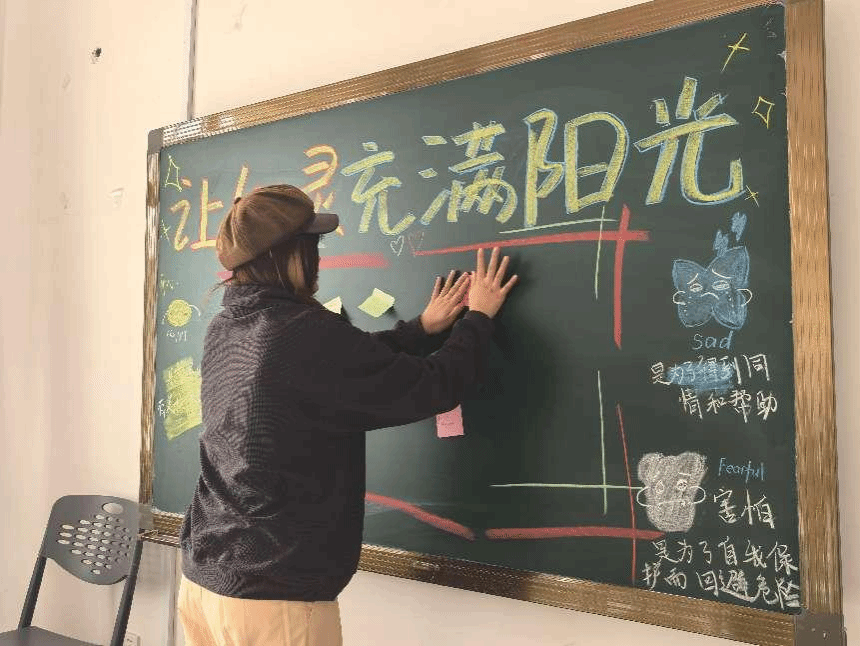 让心灵充满阳光
Sad
是为了得到同
情和帮助
Fearful
害怕
是为了自我保
护而回避危险